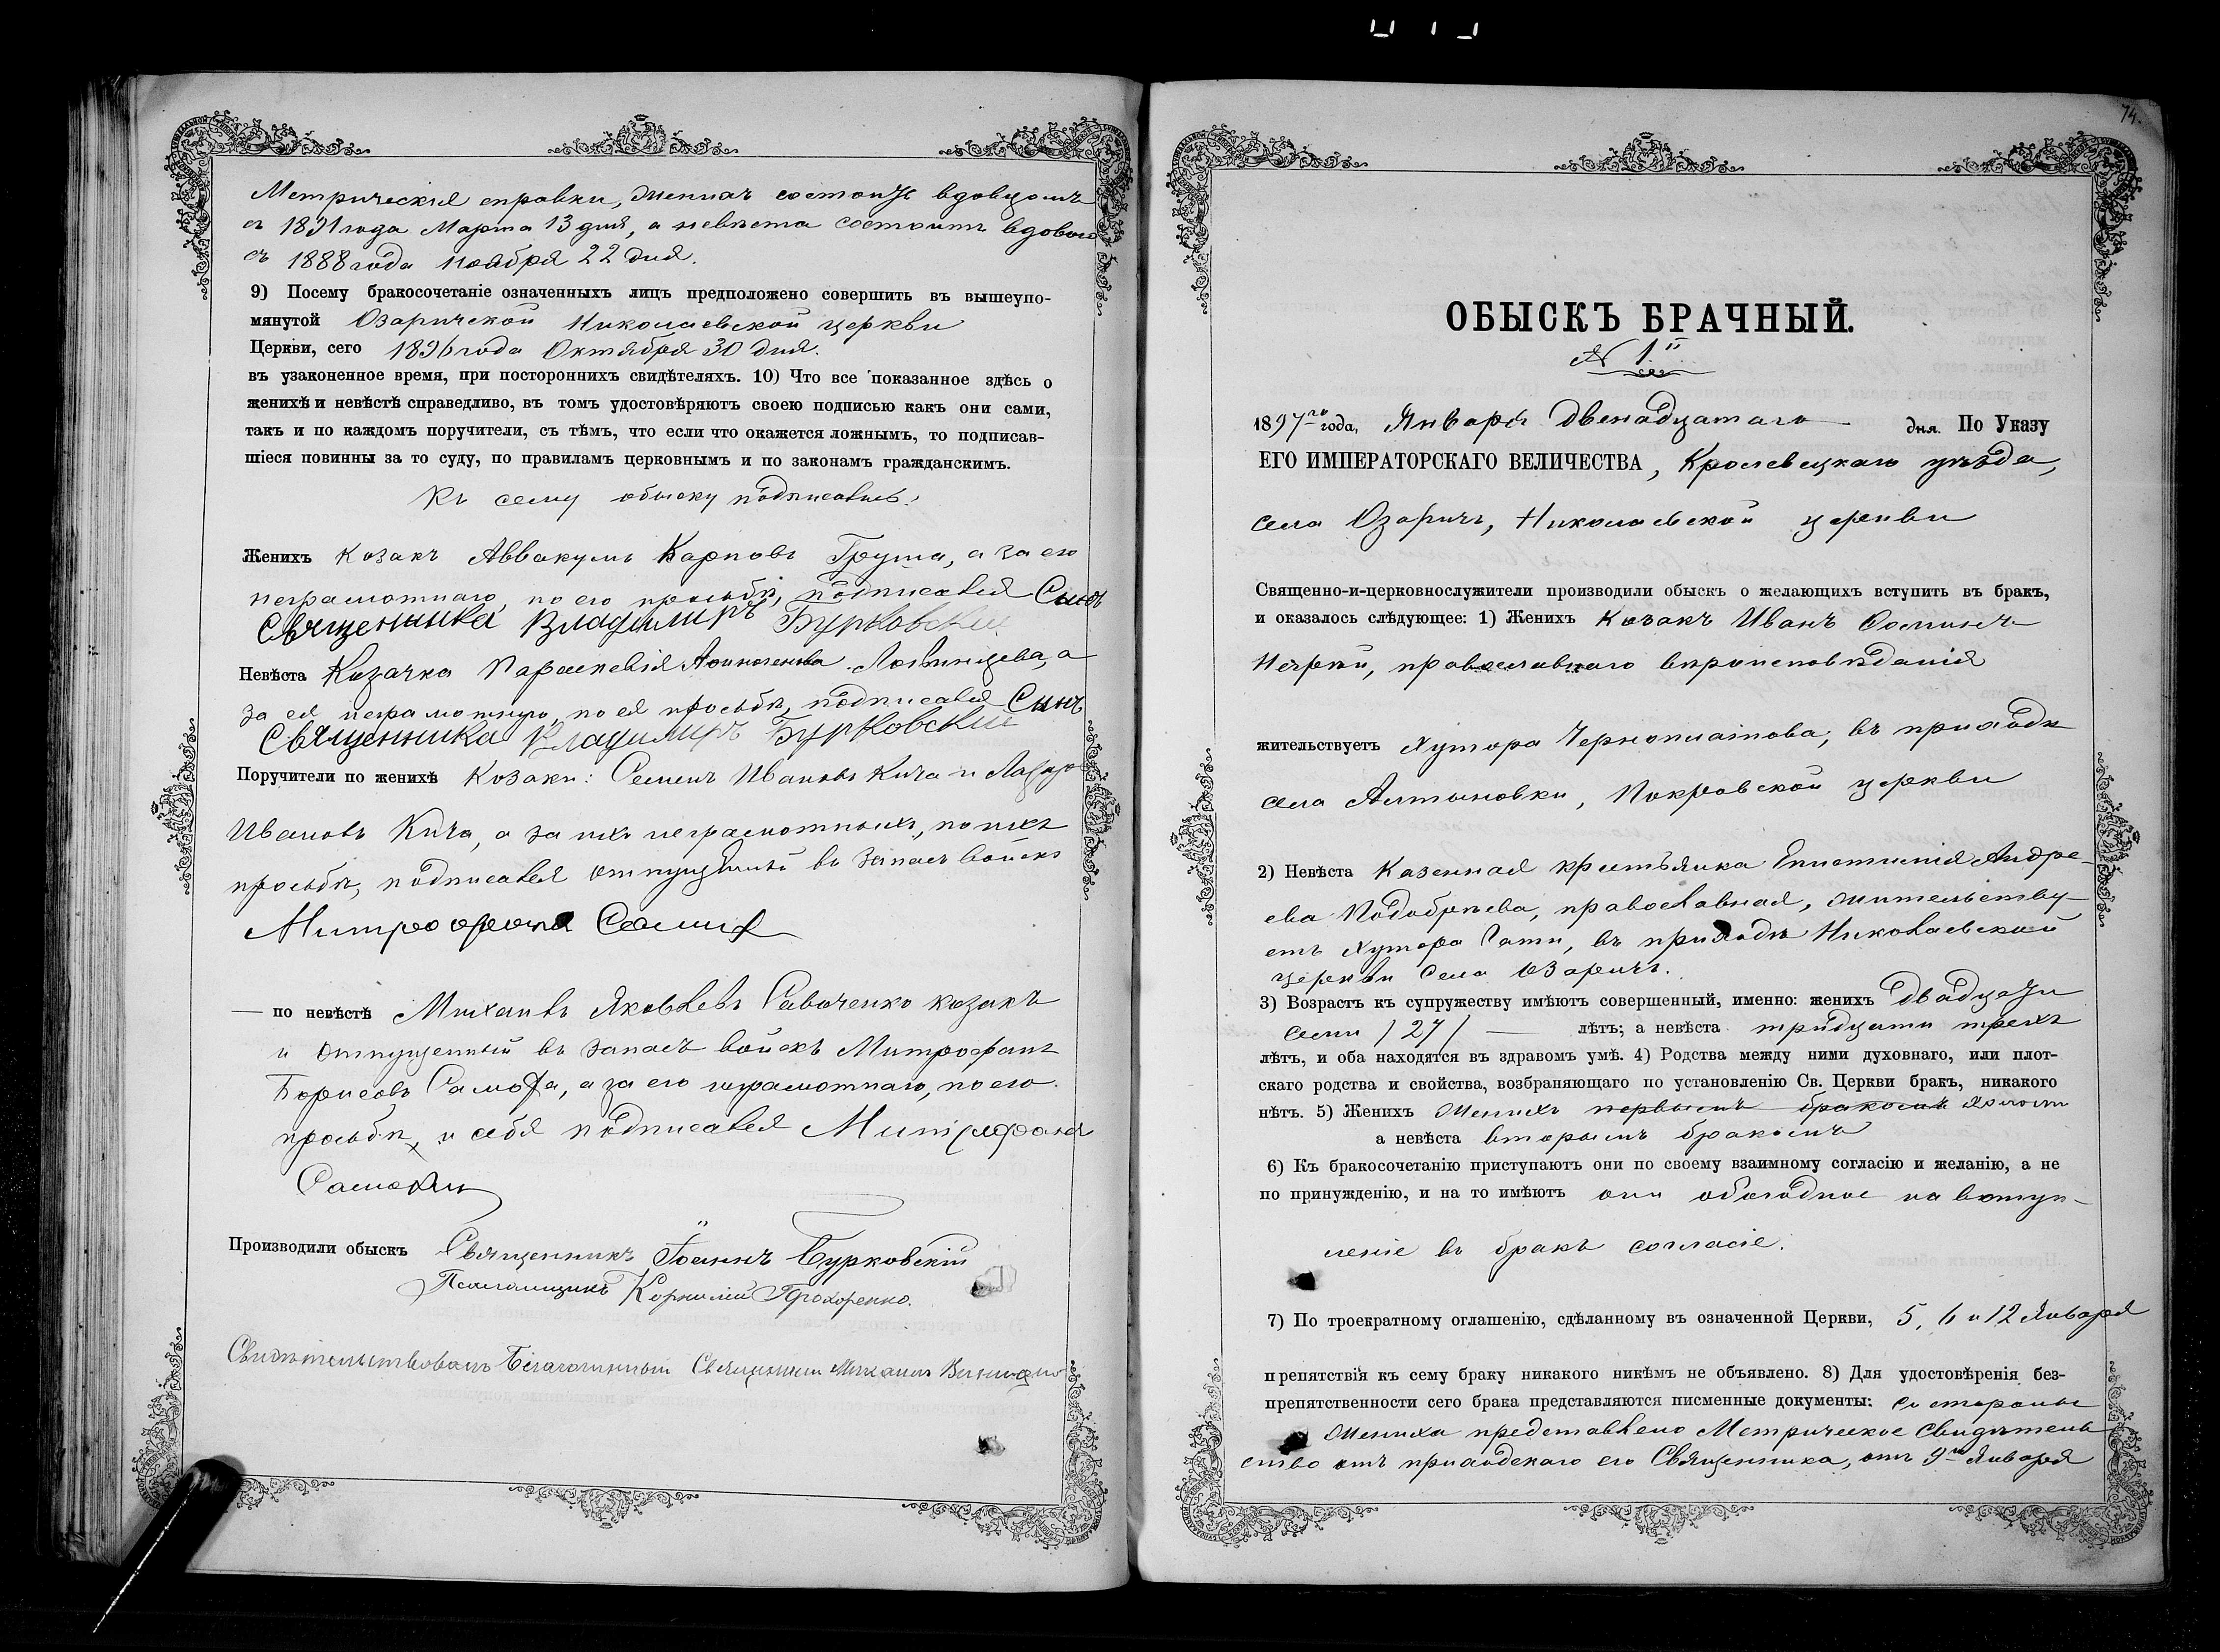 Метрическія справки, женихъ состоитъ вдовцомъ
съ 1891 года Марта 13 дня, а невѣста состоитъ вдовою
съ 1888 года ноября 22 дня.
9) Посему бракосочетаніе означенныхъ лицъ предположено совершить въ вышеупо-
мянутой Озаричской Николаевской церкви
Церкви, сего 1896 года Октября 30 дня.
въ узаконенное время, при постороннихъ свидѣтеляхъ. 10) Что все показанное здѣсь о
женихѣ и невѣстѣ справедливо, въ томъ удостовѣряютъ своею подписью какъ они сами,
такъ и по каждомъ поручители, съ тѣмъ, что если что окажется ложнымъ, то подписав-
шіеся повинны за то суду, по правиламъ церковнымъ и по законамъ гражданскимъ.
Къ сему обыску подписались:
Женихъ козакъ Аввакумъ Карповъ Груша, а за его
неграмотнаго, по его просьбѣ, подписался Сынъ
Священника Владимиръ Бурковскій
Невѣста Козачка Параскевія а
за ея неграмотную, по ея просьбѣ, подписался Сынъ
Священника Владимиръ Бурковскій
Поручители по женихѣ Козаки: Семенъ Ивановъ Кича и
Ивановъ Кича, а за ихъ неграмотныхъ, по ихъ
просьбѣ, подписался отпущенный въ запасъ войскъ
Митрофанъ
— по невѣстѣ Михаилъ Яковлевъ Савоченко козакъ
и отпущенный въ запасъ войскъ Митрофанъ
Борисовъ а за его неграмотнаго, по его
просьбѣ, и себя подписался Митрофанъ
Производили обыскъ Священникъ Іоаннъ Бурковскій
Псаломщикъ Корнилій Прохоренко.
Свидѣтельствовалъ Благочинный Священникъ Михаилъ
74.
ОБЫСКЪ БРАЧНЫЙ.
№ 1й
1897го года, Января двенадцатаго дня. По Указу
ЕГО ИМПЕРАТОРСКАГО ВЕЛИЧЕСТВА, Кролевецкаго уѣзда,
села Озаричъ, Николаевской церкви
Священно-и-церковнослужители производили обыскъ о желающихъ вступить въ бракъ,
и оказалось слѣдующее: 1) Женихъ козакъ Иванъ
православнаго вѣроисповѣданія
жительствуетъ Хутора въ приходѣ
села Алтыновки, Покровской церкви
2) Невѣста Казенная крестьянка Епистимія Андре-
ева православная, жительству-
етъ Хутора Гати, въ приходѣ Николаевской
церкви села Озаричъ.
3) Возрастъ къ супружеству имѣютъ совершенный, именно: женихъ двадцати
семи /27/ — лѣтъ; а невѣста тридцати трехъ
лѣтъ, и оба находятся въ здравомъ умѣ. 4) Родства между ними духовнаго, или плот-
скаго родства и свойства, возбраняющаго по установленію Св. Церкви бракъ, никакого
нѣтъ. 5) Женихъ женихъ первымъ бракомъ холостъ
а невѣста вторымъ бракомъ
6) Къ бракосочетанію приступаютъ они по своему взаимному согласію и желанію, а не
по принужденію, и на то имѣютъ они обоюдное на вступ-
леніе въ бракъ согласіе.
7) По троекратному оглашенію, сдѣланному въ означенной Церкви, 5, 6 и 12 Января
препятствія къ сему браку никакого никѣмъ не объявлено. 8) Для удостовѣренія без-
препятственности сего брака представляются писменные документы: со стороны
жениха представлено Метрическое Свидѣтель
ство отъ приходскаго его Священника, отъ 9го Января